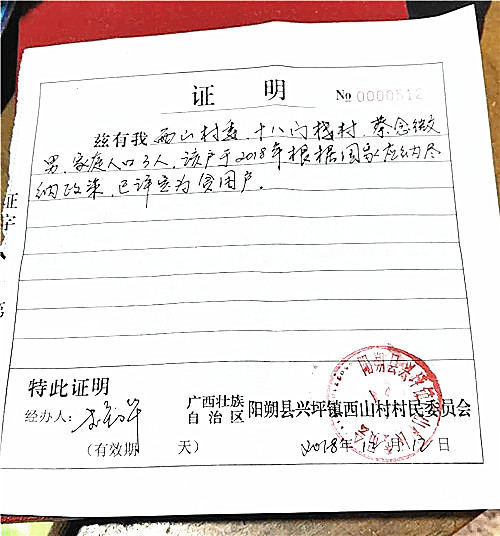 证 明
No 0000512
兹有我 西山村委，十八门楼村，蔡念微
男，家庭人口3人，该户于2018年根据国家应纳尽
纳政策，已评定为贫困户。
证字
第
特此证明
经办人：
广西壮族
自治区 阳朔县兴坪镇西山村村民委员会
（有效期 天）
2018年12月12日